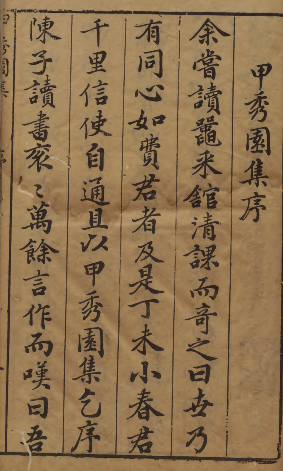 甲秀園集序
余嘗讀鼂采舘清課而竒之曰世乃
有同心如費君者及是丁未小春君
千里信使自通且以甲秀園集乞序
陳子讀書裒〻萬餘言作而嘆曰吾
甲秀園集 序